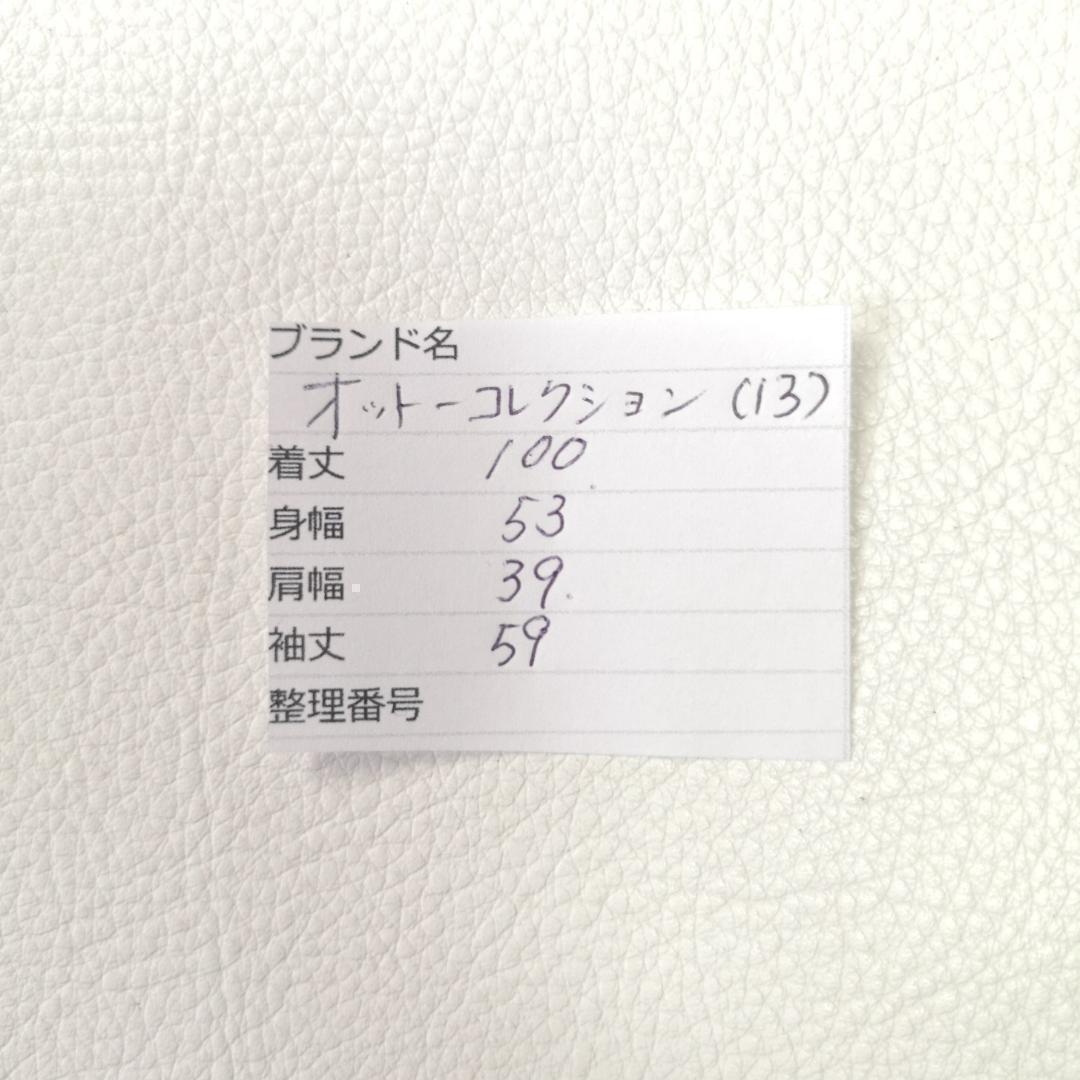 ブランド名
オットーコレクション (13)
着丈 100
身幅 53
肩幅 39
袖丈 59
整理番号